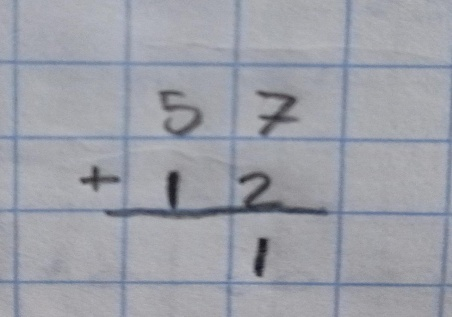 57
+ 12
1